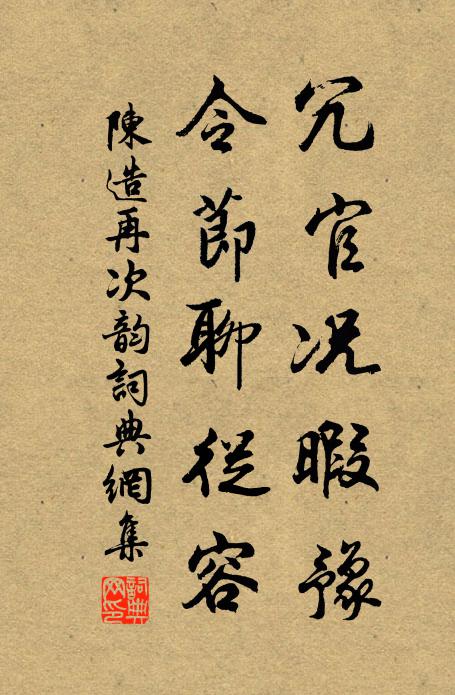 冗官况暇豫
令節聊從容
陳造再次韵詞典網集
詞典網印